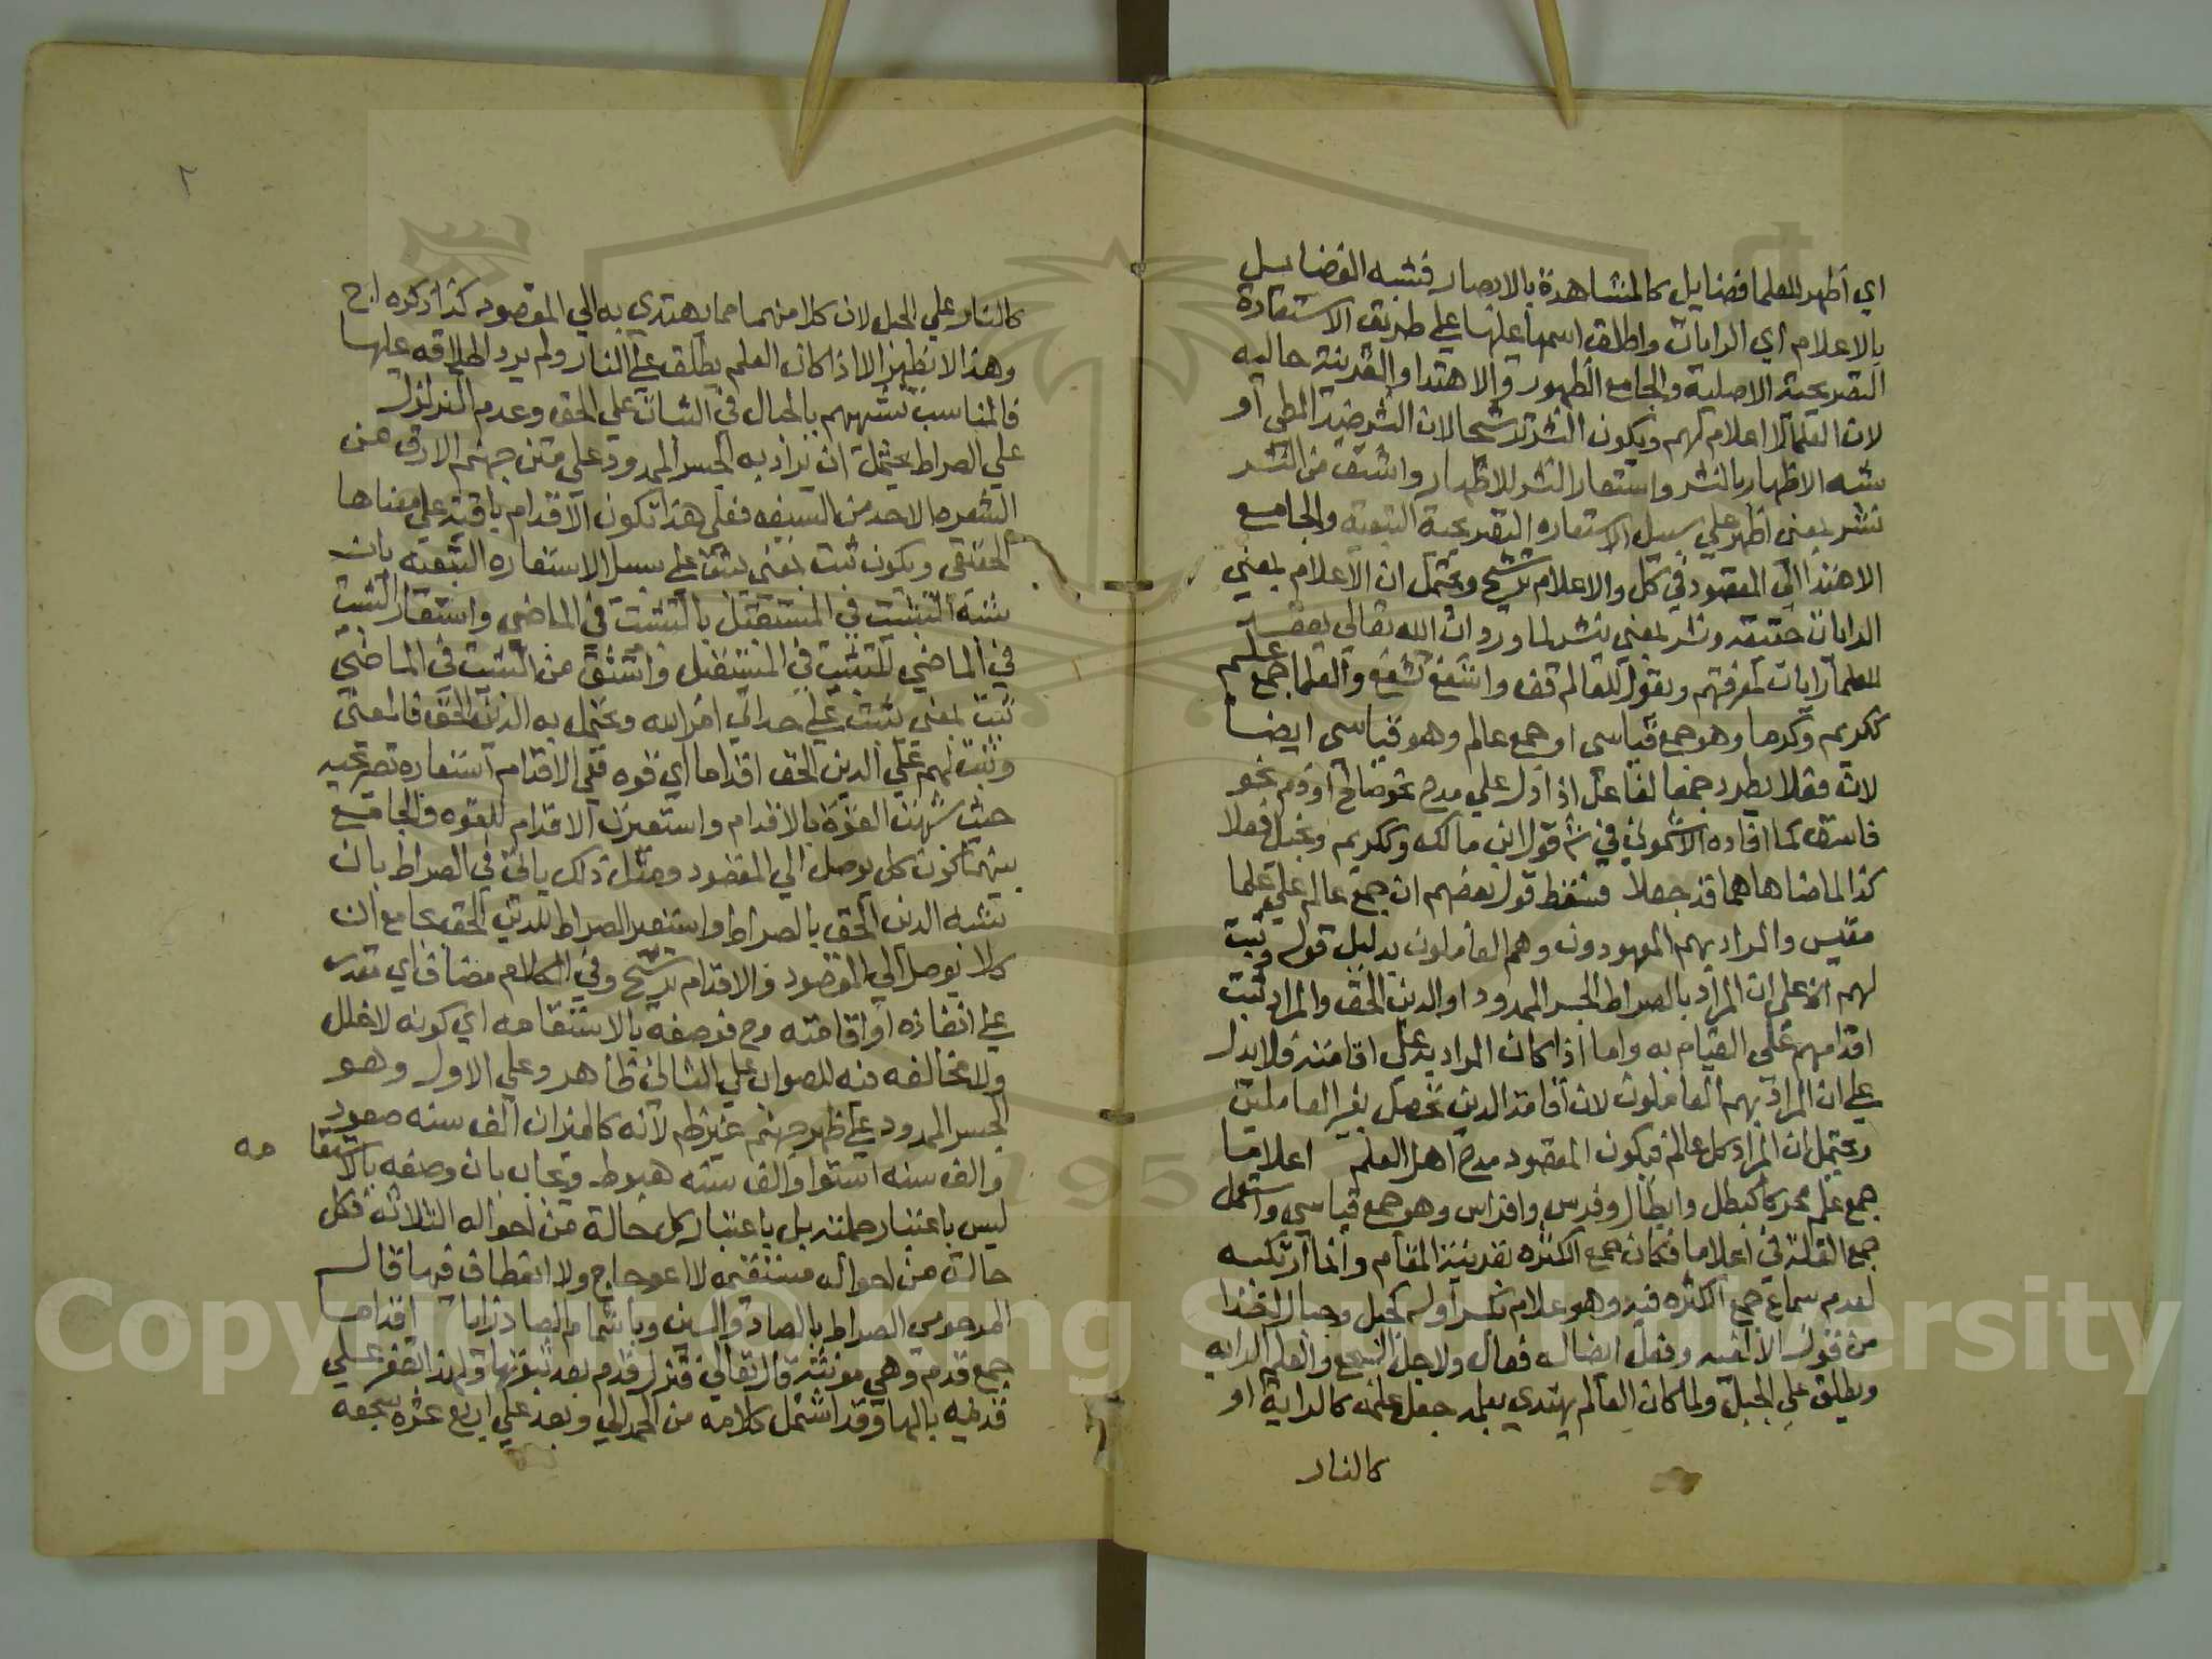 اي اظهر للعلما فضايل كالمشاهدة بالابصار فشبه الفضايل
بالاعلام اي الرايات واطلق اسمها عليها علي طريق الاستعارة
التصريحية الاصلية والجامع الظهور والاهتدا والقرينة حاليه
لان العلما لا اعلام لهم ويكون النشر ترشيحا لان النشر ضد الطي او
شبه الاظهار بالنشر واستعار النشر للاظهار واشتق من النشر
نشر بمعني اظهر علي سبيل الاستعاره التصريحية التبعية والجامع
الاهتدا الي المقصود في كل والاعلام ترشيح ويحتمل ان الاعلام بمعني
الرايات حقيقه ونشر بمعني ينشر لما ورد ان الله تعالي يعقد
للعلما رايات لمعرفتهم ويقول للعالم قف واشفع تشفع والعلما جمع علم
ككريم وكرما وهو جمع قياسي او جمع عالم وهو قياسي ايضا
لان فعلا يطرد جمعا لفاعل اذا دل علي مدح نحو صالح او ذم نحو
فاسق كما افاده الاشموني في قول ابن مالك وككريم وبخيل فعلا
كذا لما ضاهاهما قد جعلا فسقط قول بعضهم ان جمع عالم علي علما
مقيس والمراد بهم المعهودون وهم العاملون بدليل قوله وثبت
لهم الخ علي ان المراد بالصراط الجسر الممدود او الدين الحق والمراد ثبت
اقدامهم علي القيام به واما اذا كان المراد به علي اقامته فلا يدل
علي ان المراد بهم العاملون لان اقامة الدين تحصل بغير العاملين
ويحتمل ان المراد كل عالم فيكون المقصود مدح اهل العلم اعلاما
جمع علم محركا كبطل وابطال وفرس وافراس وهو جمع قياسي واستعمل
جمع القلة في اعلاما مكان جمع الكثره بقرينة المقام وانما ارتكبه
لعدم سماع جمع الكثره فيه وهو علام بكسر اوله كجبل وجبال اخذا
من قول الالفيه وفعل ايضا له فعال ولاجل السجع والعلم الرايه
ويطلق علي الجبل ولما كان العالم يهتدي بعلمه جعل علمه كالراية او
كالنار
٢
كالنار علي الجبل لان كلا منهما مما يهتدي به الي المقصود كذا ذكره اج
وهذا لا يظهر الا اذا كان العلم يطلق علي النار ولم يرد اطلاقه عليها
فالمناسب تشبيههم بالجبال في الثبات علي الحق وعدم التزلزل
علي الصراط يحتمل ان يراد به الجسر الممدود علي متن جهنم الارق من
الشعره الاحد من السيف فعلي هذا تكون الاقدام باقية علي معناها
الحقيقي ويكون ثبت بمعني يثبت علي سبيل الاستعاره التبعيه بان
شبه التثبيت في المستقبل بالتثبيت في الماضي واستعار التثبيت
في الماضي للتثبيت في المستقبل واشتق من التثبيت في الماضي
ثبت بمعني يثبت علي حد اتي امر الله ويحتمل به الدين الحق فالمعني
وثبت لهم علي الدين الحق اقداما اي قوه ففي الاقدام استعاره تصريحيه
حيث شبهت القوة بالاقدام واستعيرت الاقدام للقوه والجامع
بينهما كون كل يوصل الي المقصود ومثل ذلك ياتي في الصراط بان
تشبه الدين الحق بالصراط واستعير الصراط للدين الحق بجامع ان
كلا يوصل الي المقصود والاقدام ترشيح وفي الكلام مضاف اي
علي انفاذه او اقامته وح فوصفه بالاستقامه اي كونه لا خلل
ولا مخالفه فيه للصواب علي الثاني ظاهر وعلي الاول وهو
الجسر الممدود علي ظهر جهنم غير ظه لانه كالميزان الف سنه صعود
والف سنه استوا والف سنه هبوط ويجاب بان وصفه بالاستقا مه
ليس باعتبار جملته بل باعتبار كل حالة من احواله الثلاثه فكل
حالة من احواله مستقيمه لا اعوجاج ولا انعطاف فيها قاله
المرحومي الصراط بالصاد والسين وباشمام الصاد زايا اقداما
جمع قدم وهي مونثة قال تعالي فتزل قدم بعد ثبوتها ولهذا تصغر علي
قديمه بالها وقد اشتمل كلامه من الحمد الي وبعد علي اربع عشره سجعه
Copyright © King Saud University
1957